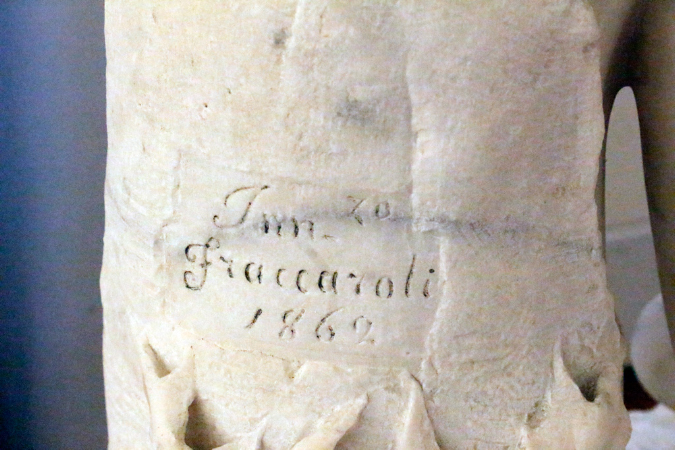 Inn.zo
Fraccaroli
1862